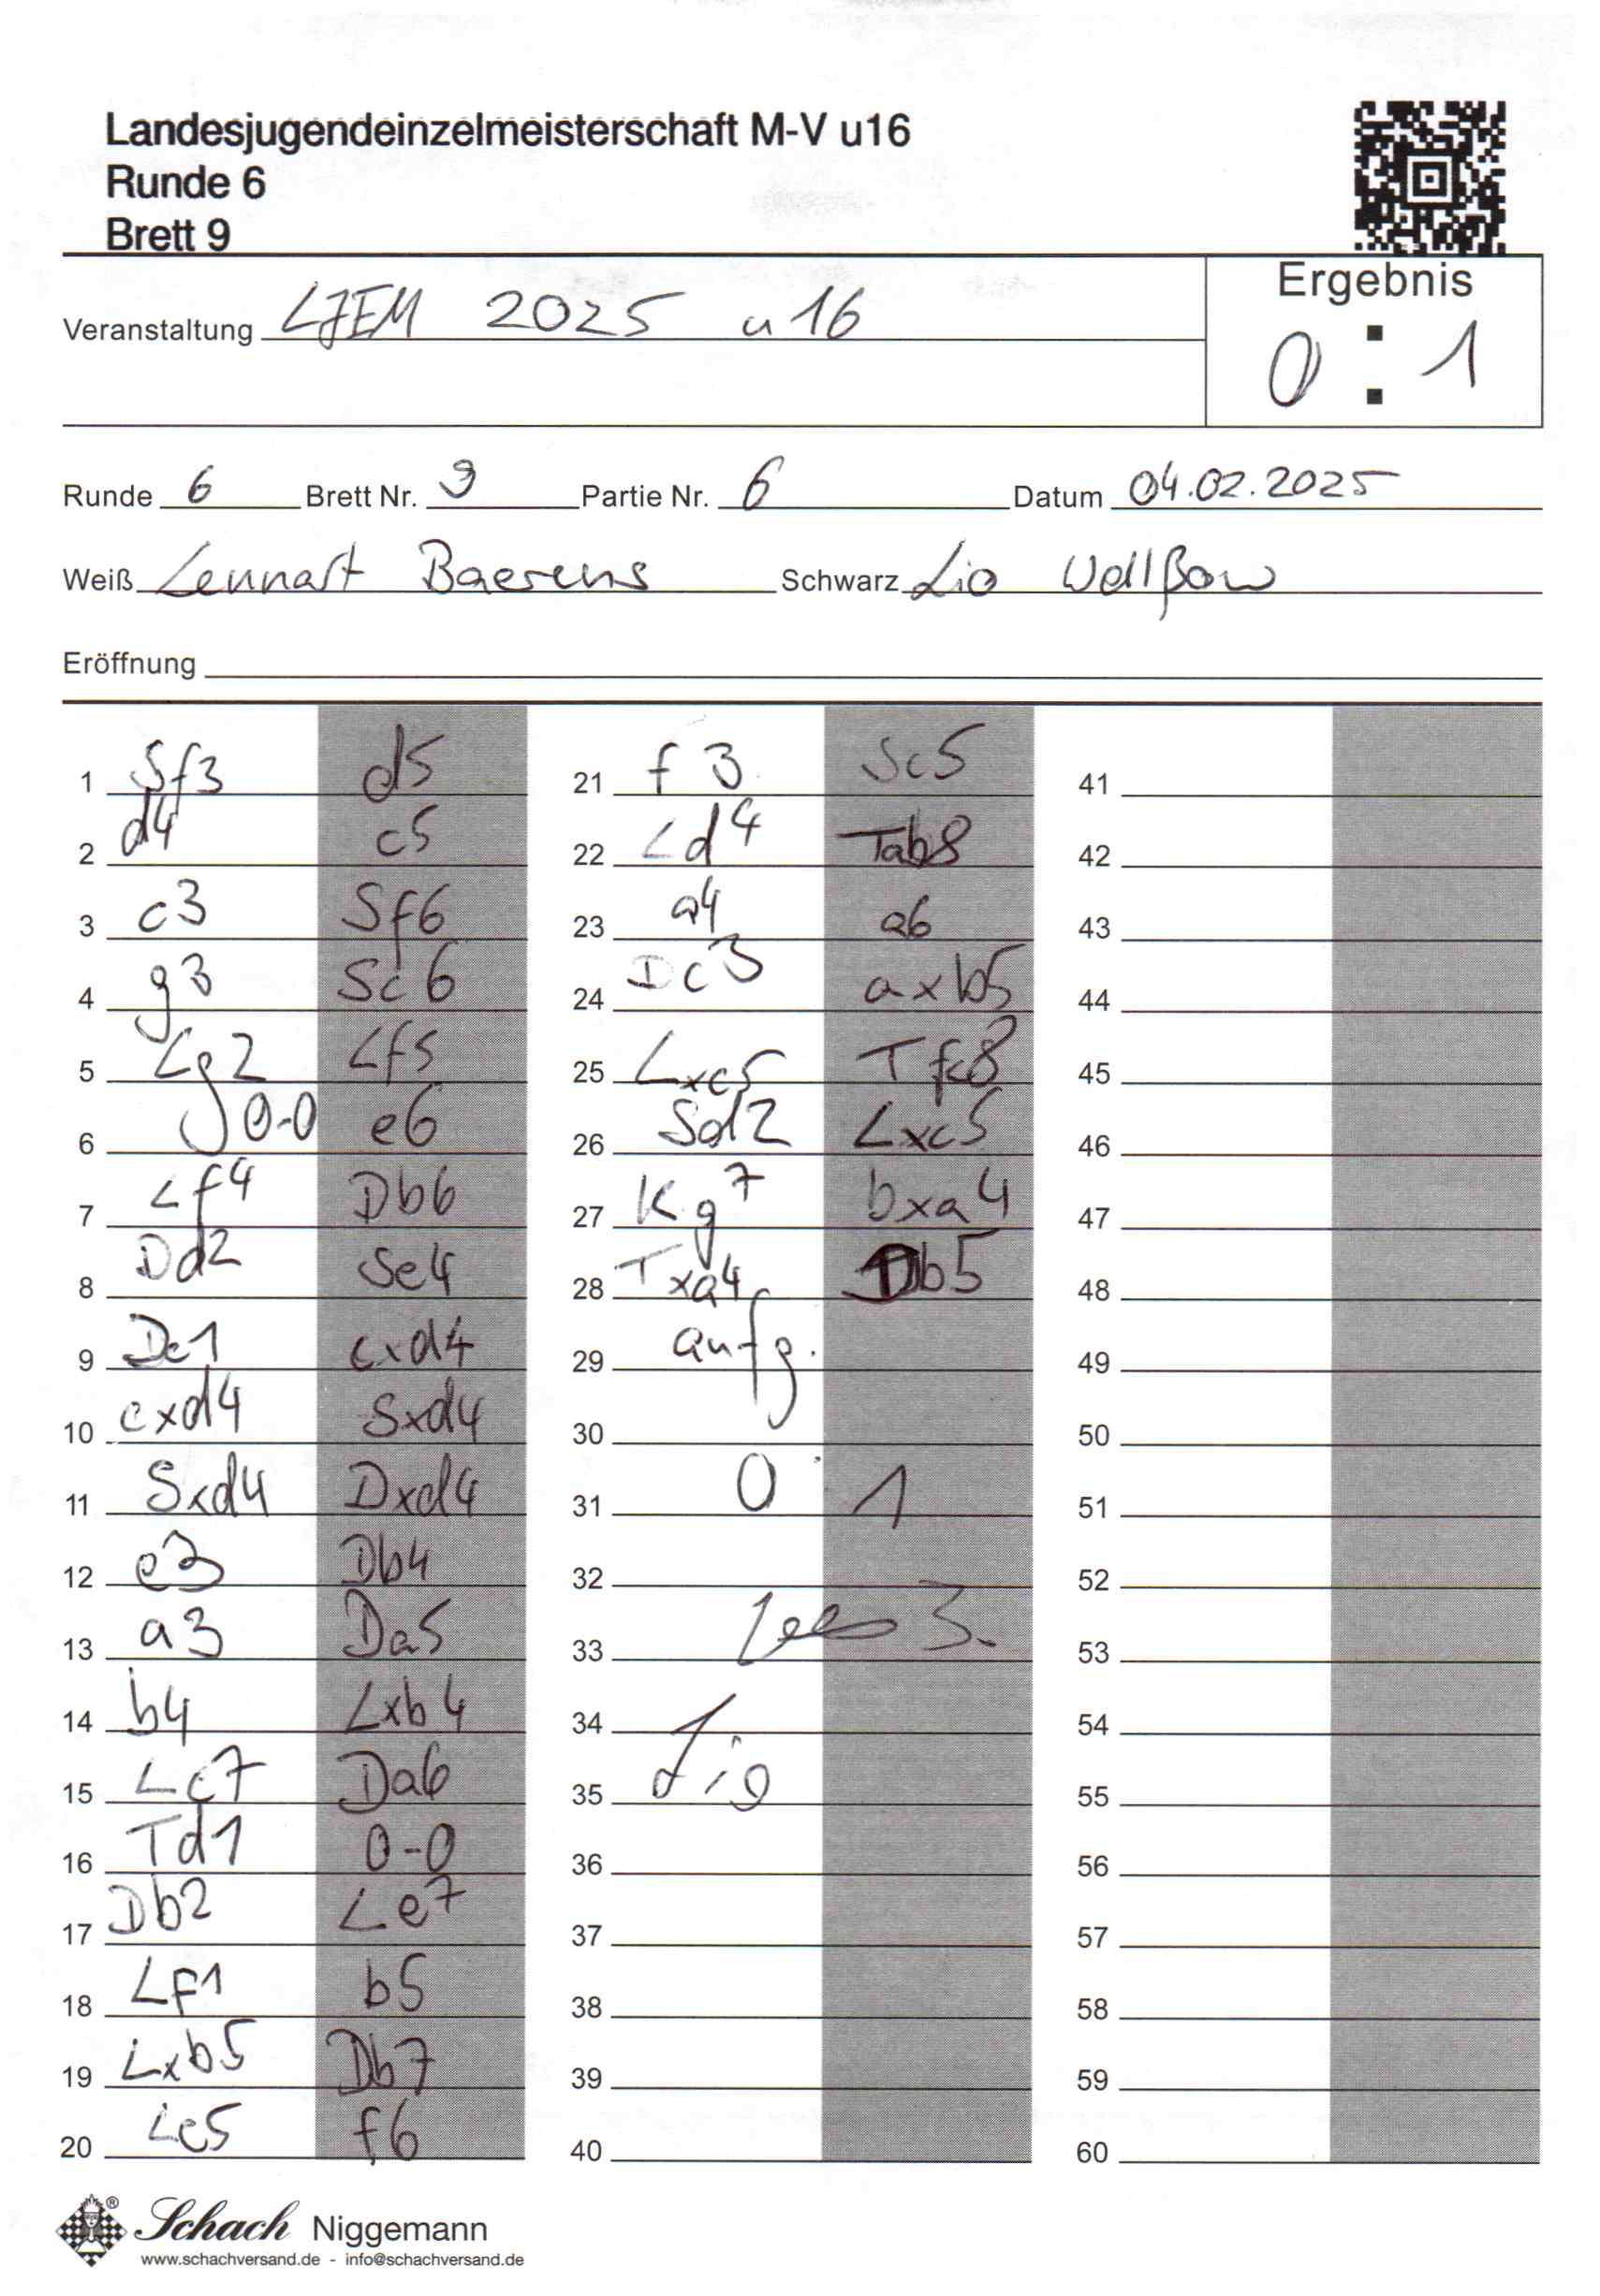 Landesjugendeinzelmeisterschaft M-V u16
Runde 6
Brett 9
Ergebnis
Veranstaltung LJEM 2025 u16
0 : 1
Runde 6 Brett Nr. 9 Partie Nr. 6 Datum 04.02.2025
Weiß Lennart Baerens Schwarz Lio Wollßow
Eröffnung
1 Sf3 d5 21 f3 Sc5 41
2 d4 c5 22 Ld4 Tab8 42
3 c3 Sf6 23 a4 a6 43
4 g3 Sc6 24 Dc3 axb5 44
5 Lg2 Lf5 25 Lxc5 Tfc8 45
6 0-0 e6 26 Sd2 Lxc5 46
7 Lf4 Db6 27 Kg7 bxa4 47
8 Dd2 Se4 28 Txa4 Db5 48
9 Dc1 cxd4 29 aufg. 49
10 cxd4 Sxd4 30 50
11 Sxd4 Dxd4 31 0 1 51
12 e3 Db4 32 52
13 a3 Da5 33 53
14 b4 Lxb4 34 54
15 Lc7 Da6 35 Lio 55
16 Td1 0-0 36 56
17 Db2 Le7 37 57
18 Lf1 b5 38 58
19 Lxb5 Db7 39 59
20 Le5 f6 40 60
Schach Niggemann
www.schachversand.de - info@schachversand.de